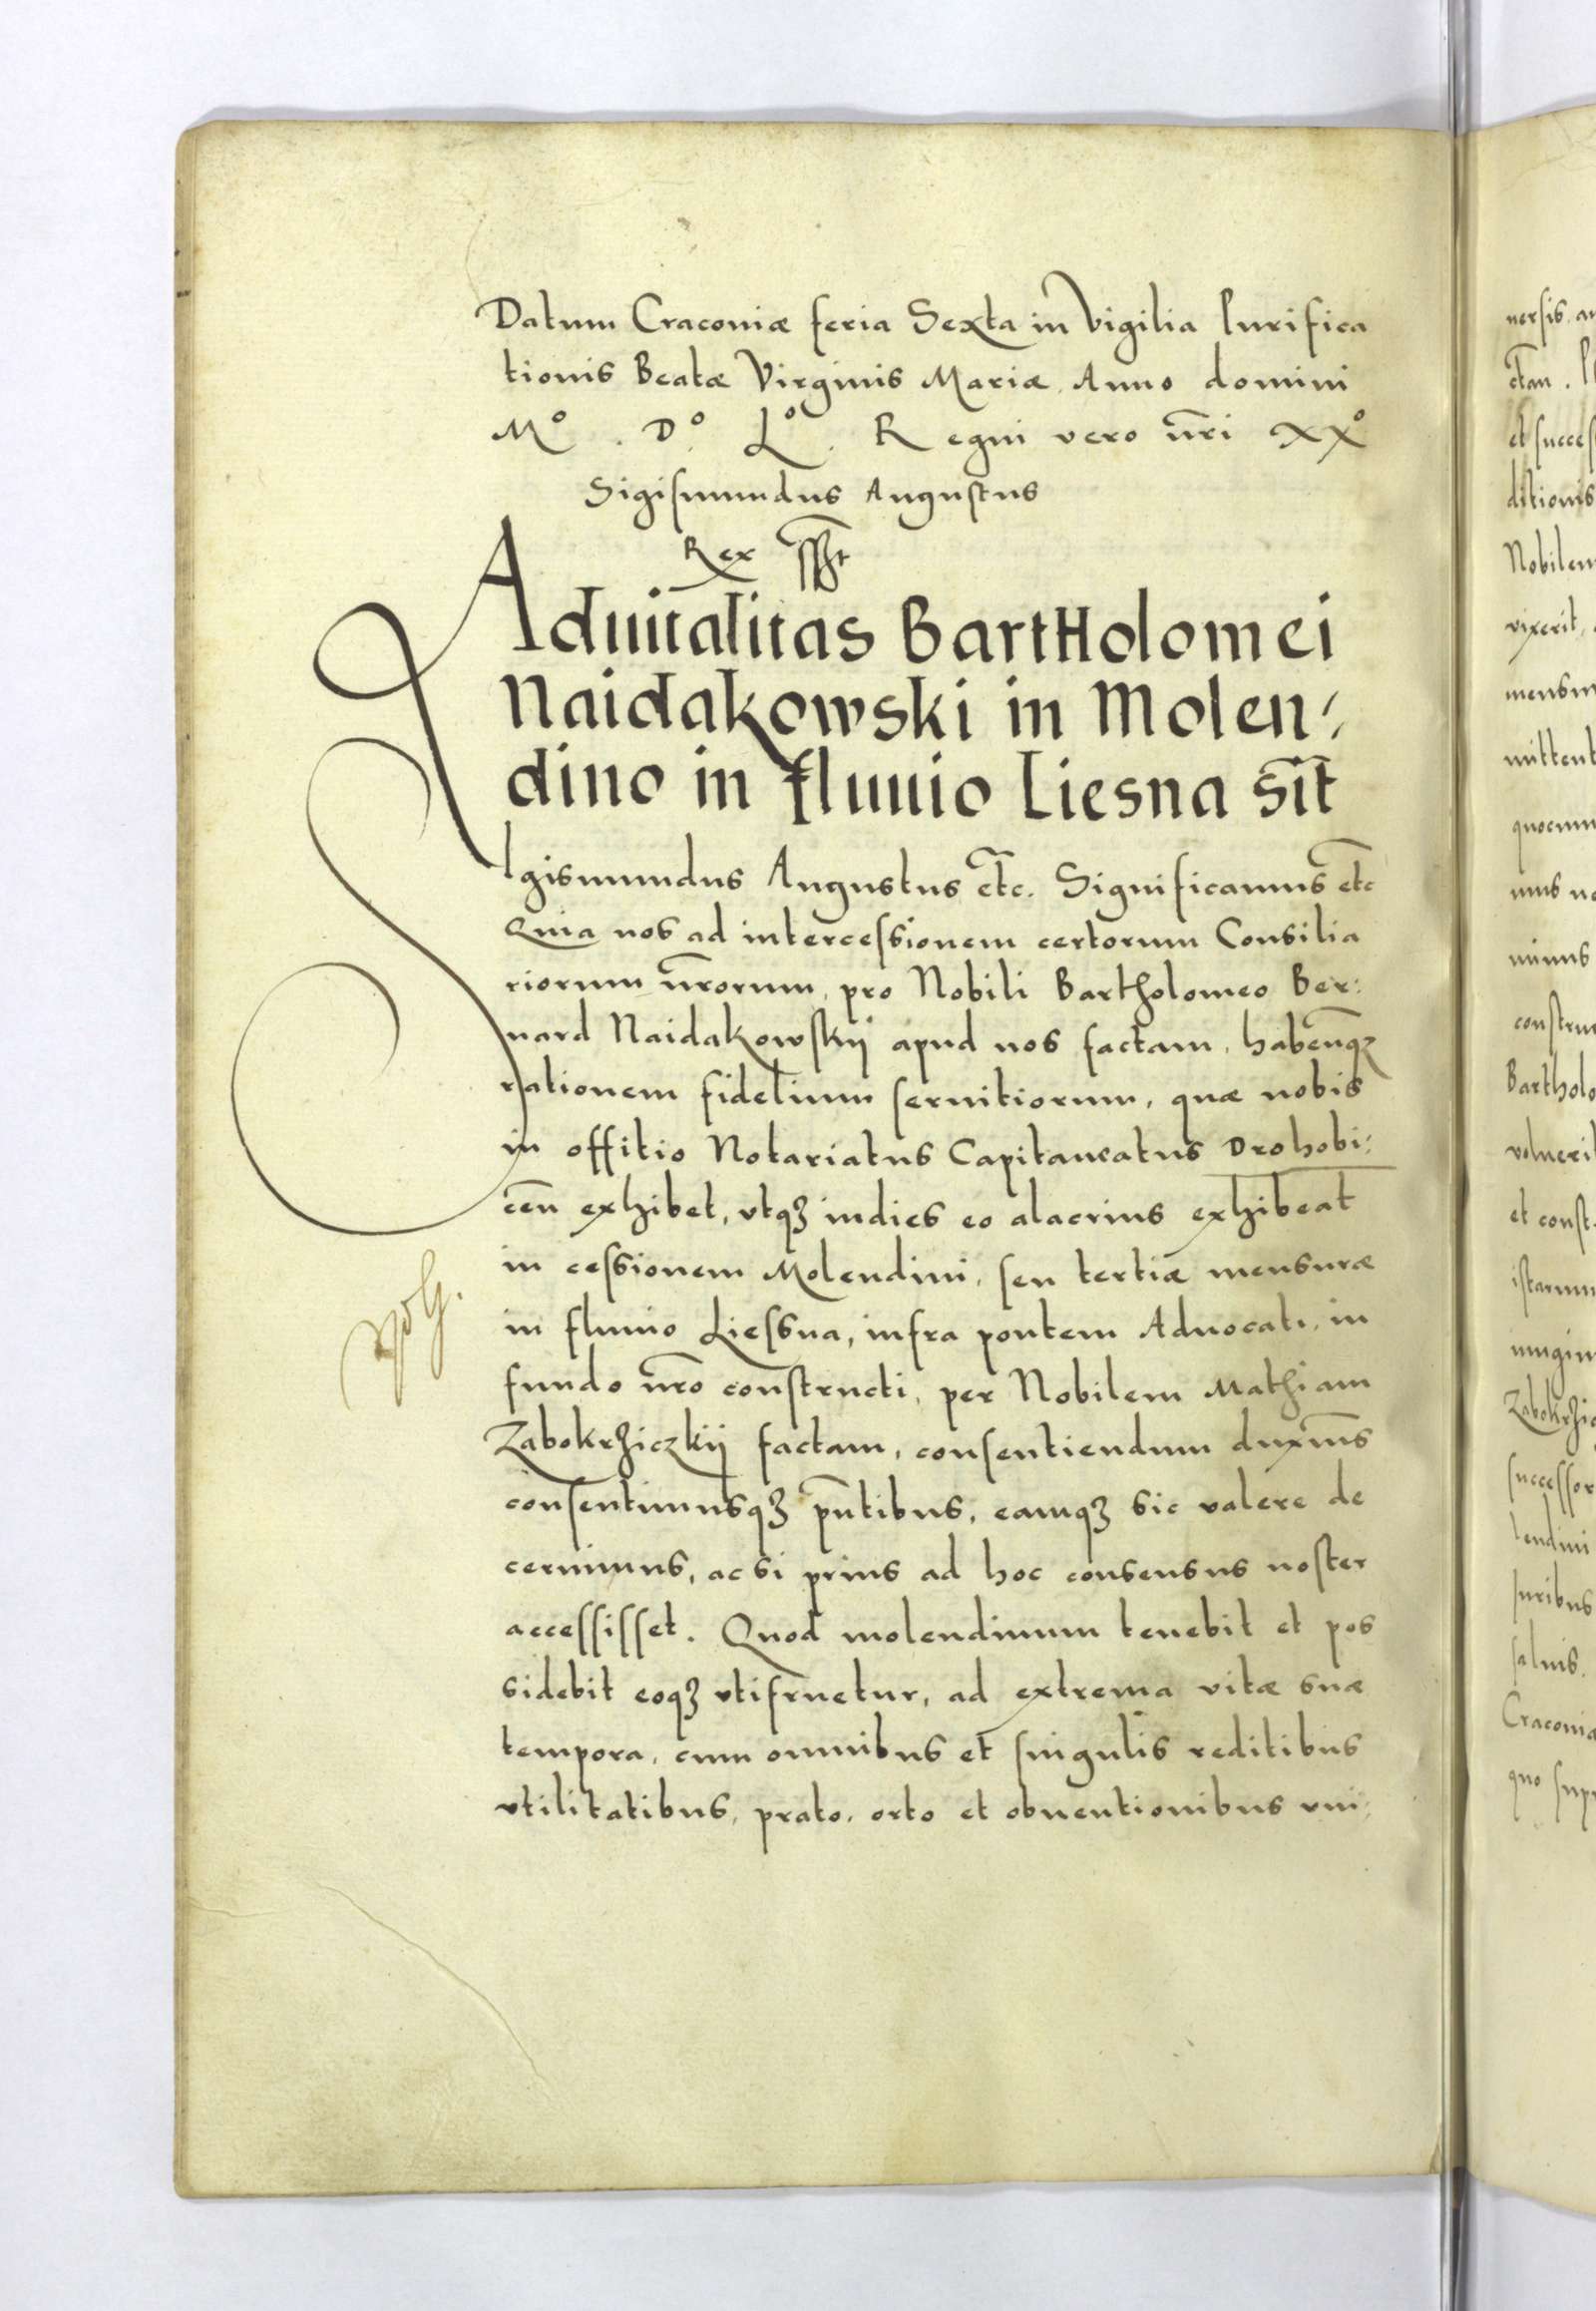 Datum Craconiæ feria Sexta in Vigilia Purifica
tionis Beatæ Virginis Mariæ. Anno domini
Mº. Dº. Lº. Regni vero nr̃i XXº
Sigismundus Augustus
Rex
Aduitalitas Bartholomei
Naidakowski in Molen⸗
dino in fluuio Liesna sit̃
SIgismundus Augustus etc̃. Significamus etc̃
Quia nos ad intercessionem certorum Consilia
riorum nr̃orum, pro Nobili Bartholomeo Ber:
nard Naidakowskij apud nos factam, habeñqꝫ
rationem fidelium seruitiorum, quæ nobis
in offitio Notariatus Capitaneatus Drohobi:
ceñ exhibet, vtqꝫ indies eo alacrius exhibeat
in cessionem Molendini, seu tertiæ mensuræ
in fluuio Liessna, infra pontem Aduocati, in
fundo nr̃o constructi, per Nobilem Mathiam
Zabokrziczkij factam, consentiendum duxim̃s
consentimusqꝫ pñtibus, eamqꝫ sic valere de
cernimus, ac si prius ad hoc consensus noster
accessisset. Quod molendinum tenebit et pos
sidebit eoqꝫ vtifruetur, ad extrema vitæ suæ
tempora, cum omnibus et singulis reditibus
vtilitatibus, prato, orto et obuentionibus vni:
nersis
et succes
ditionis
Nobilem
vixerit,
mittent
Bartholo
voluerit
et const
Zabokrzic
successor
lendini
Iuribus
saluis.
Craconiæ
quo supr